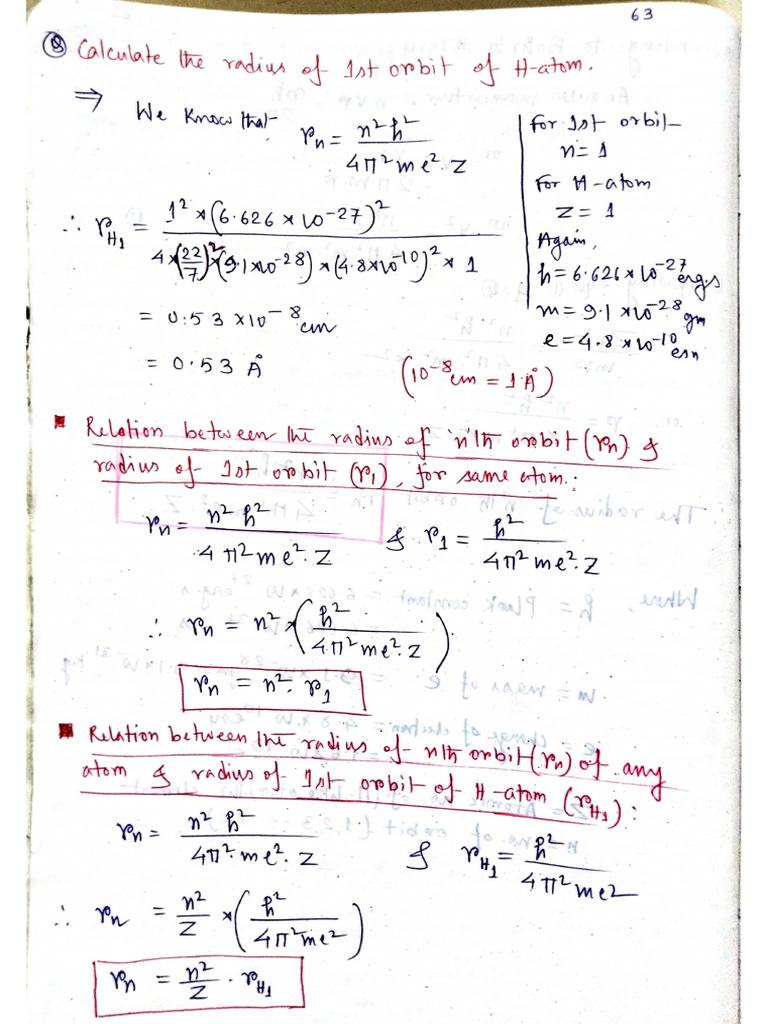 63
Q Calculate the radius of 1st orbit of H-atom.
⇒ We know that, rn = n²h² / 4π²me²Z
For 1st orbit
n = 1
For H-atom
Z = 1
Again,
h = 6.626 × 10⁻²⁷ erg.s
m = 9.1 × 10⁻²⁸ gm
e = 4.8 × 10⁻¹⁰ esu
∴ rH₁ = 1² × (6.626 × 10⁻²⁷)² / 4 × (22/7)² × (9.1 × 10⁻²⁸) × (4.8 × 10⁻¹⁰)² × 1
= 0.53 × 10⁻⁸ cm
= 0.53 Å
(10⁻⁸ cm = 1 Å)
Relation between the radius of nth orbit (rn) &
radius of 1st orbit (r1), for same atom:
rn = n²h² / 4π²me².Z & r1 = h² / 4π²me².Z
∴ rn = n² × (h² / 4π²me².Z)
rn = n². r1
Relation between the radius of nth orbit (rn) of any
atom & radius of 1st orbit of H-atom (rH₁):
rn = n²h² / 4π².me².Z & rH₁ = h² / 4π²me²
∴ rn = n²/Z × (h² / 4π²me²)
rn = n²/Z . rH₁